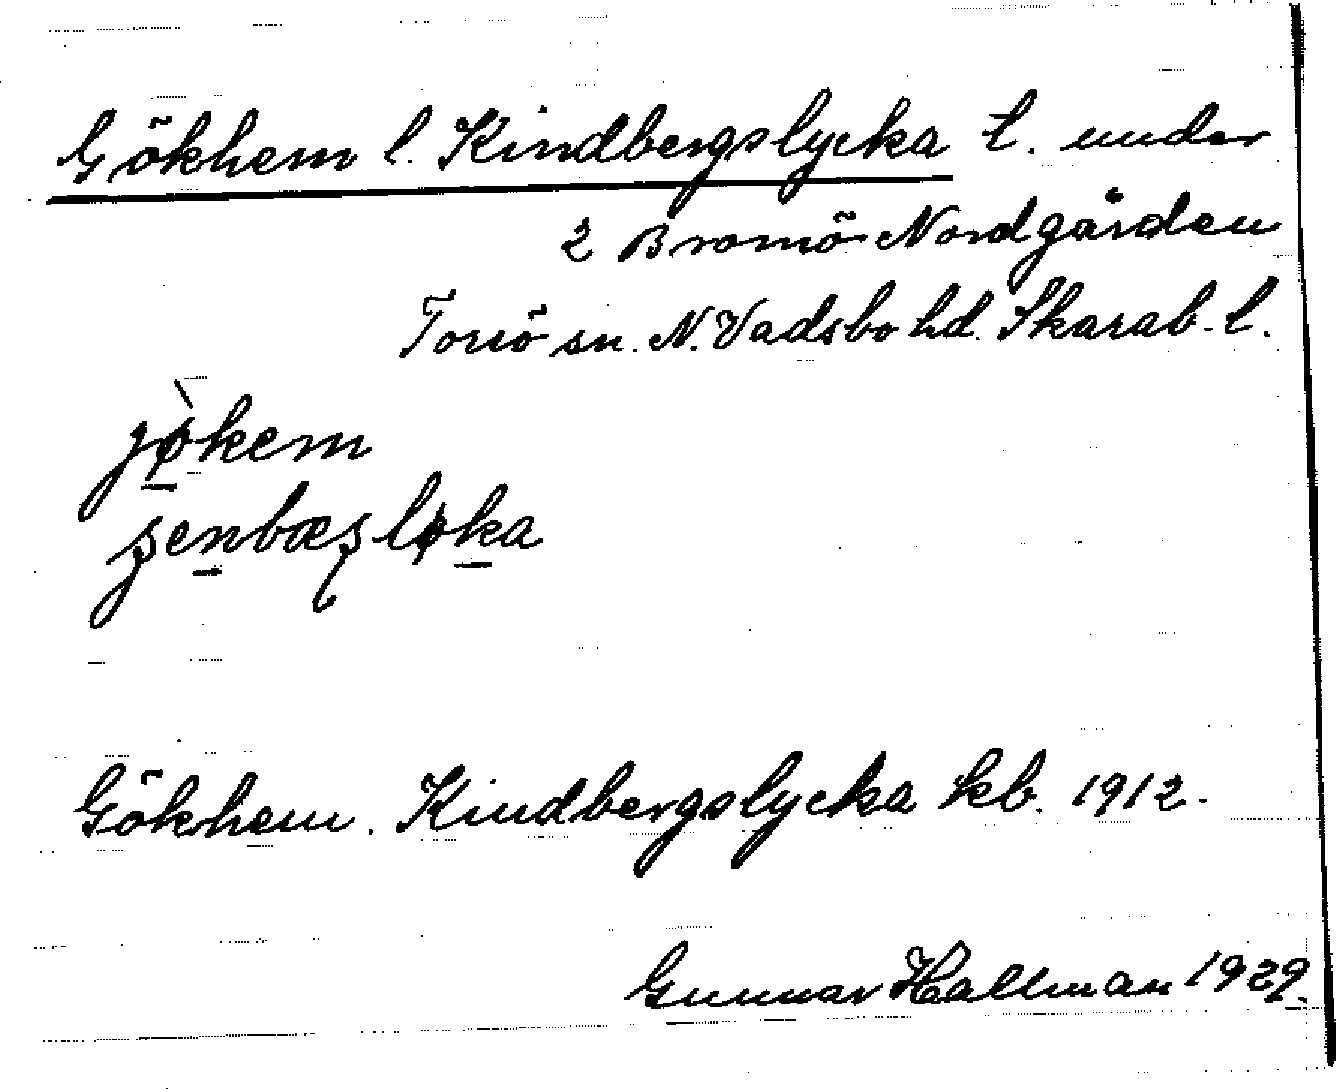 Gökhem l. Kindbergslycka t. under
2 Bromö Nordgården
Torsö sn. N. Vadsbo hd. Skarab. l.
jø̀kem
ʂenbæʂløka
Gökhem. Kindbergslycka kb. 1912.
Gunnar Hallman 1929.